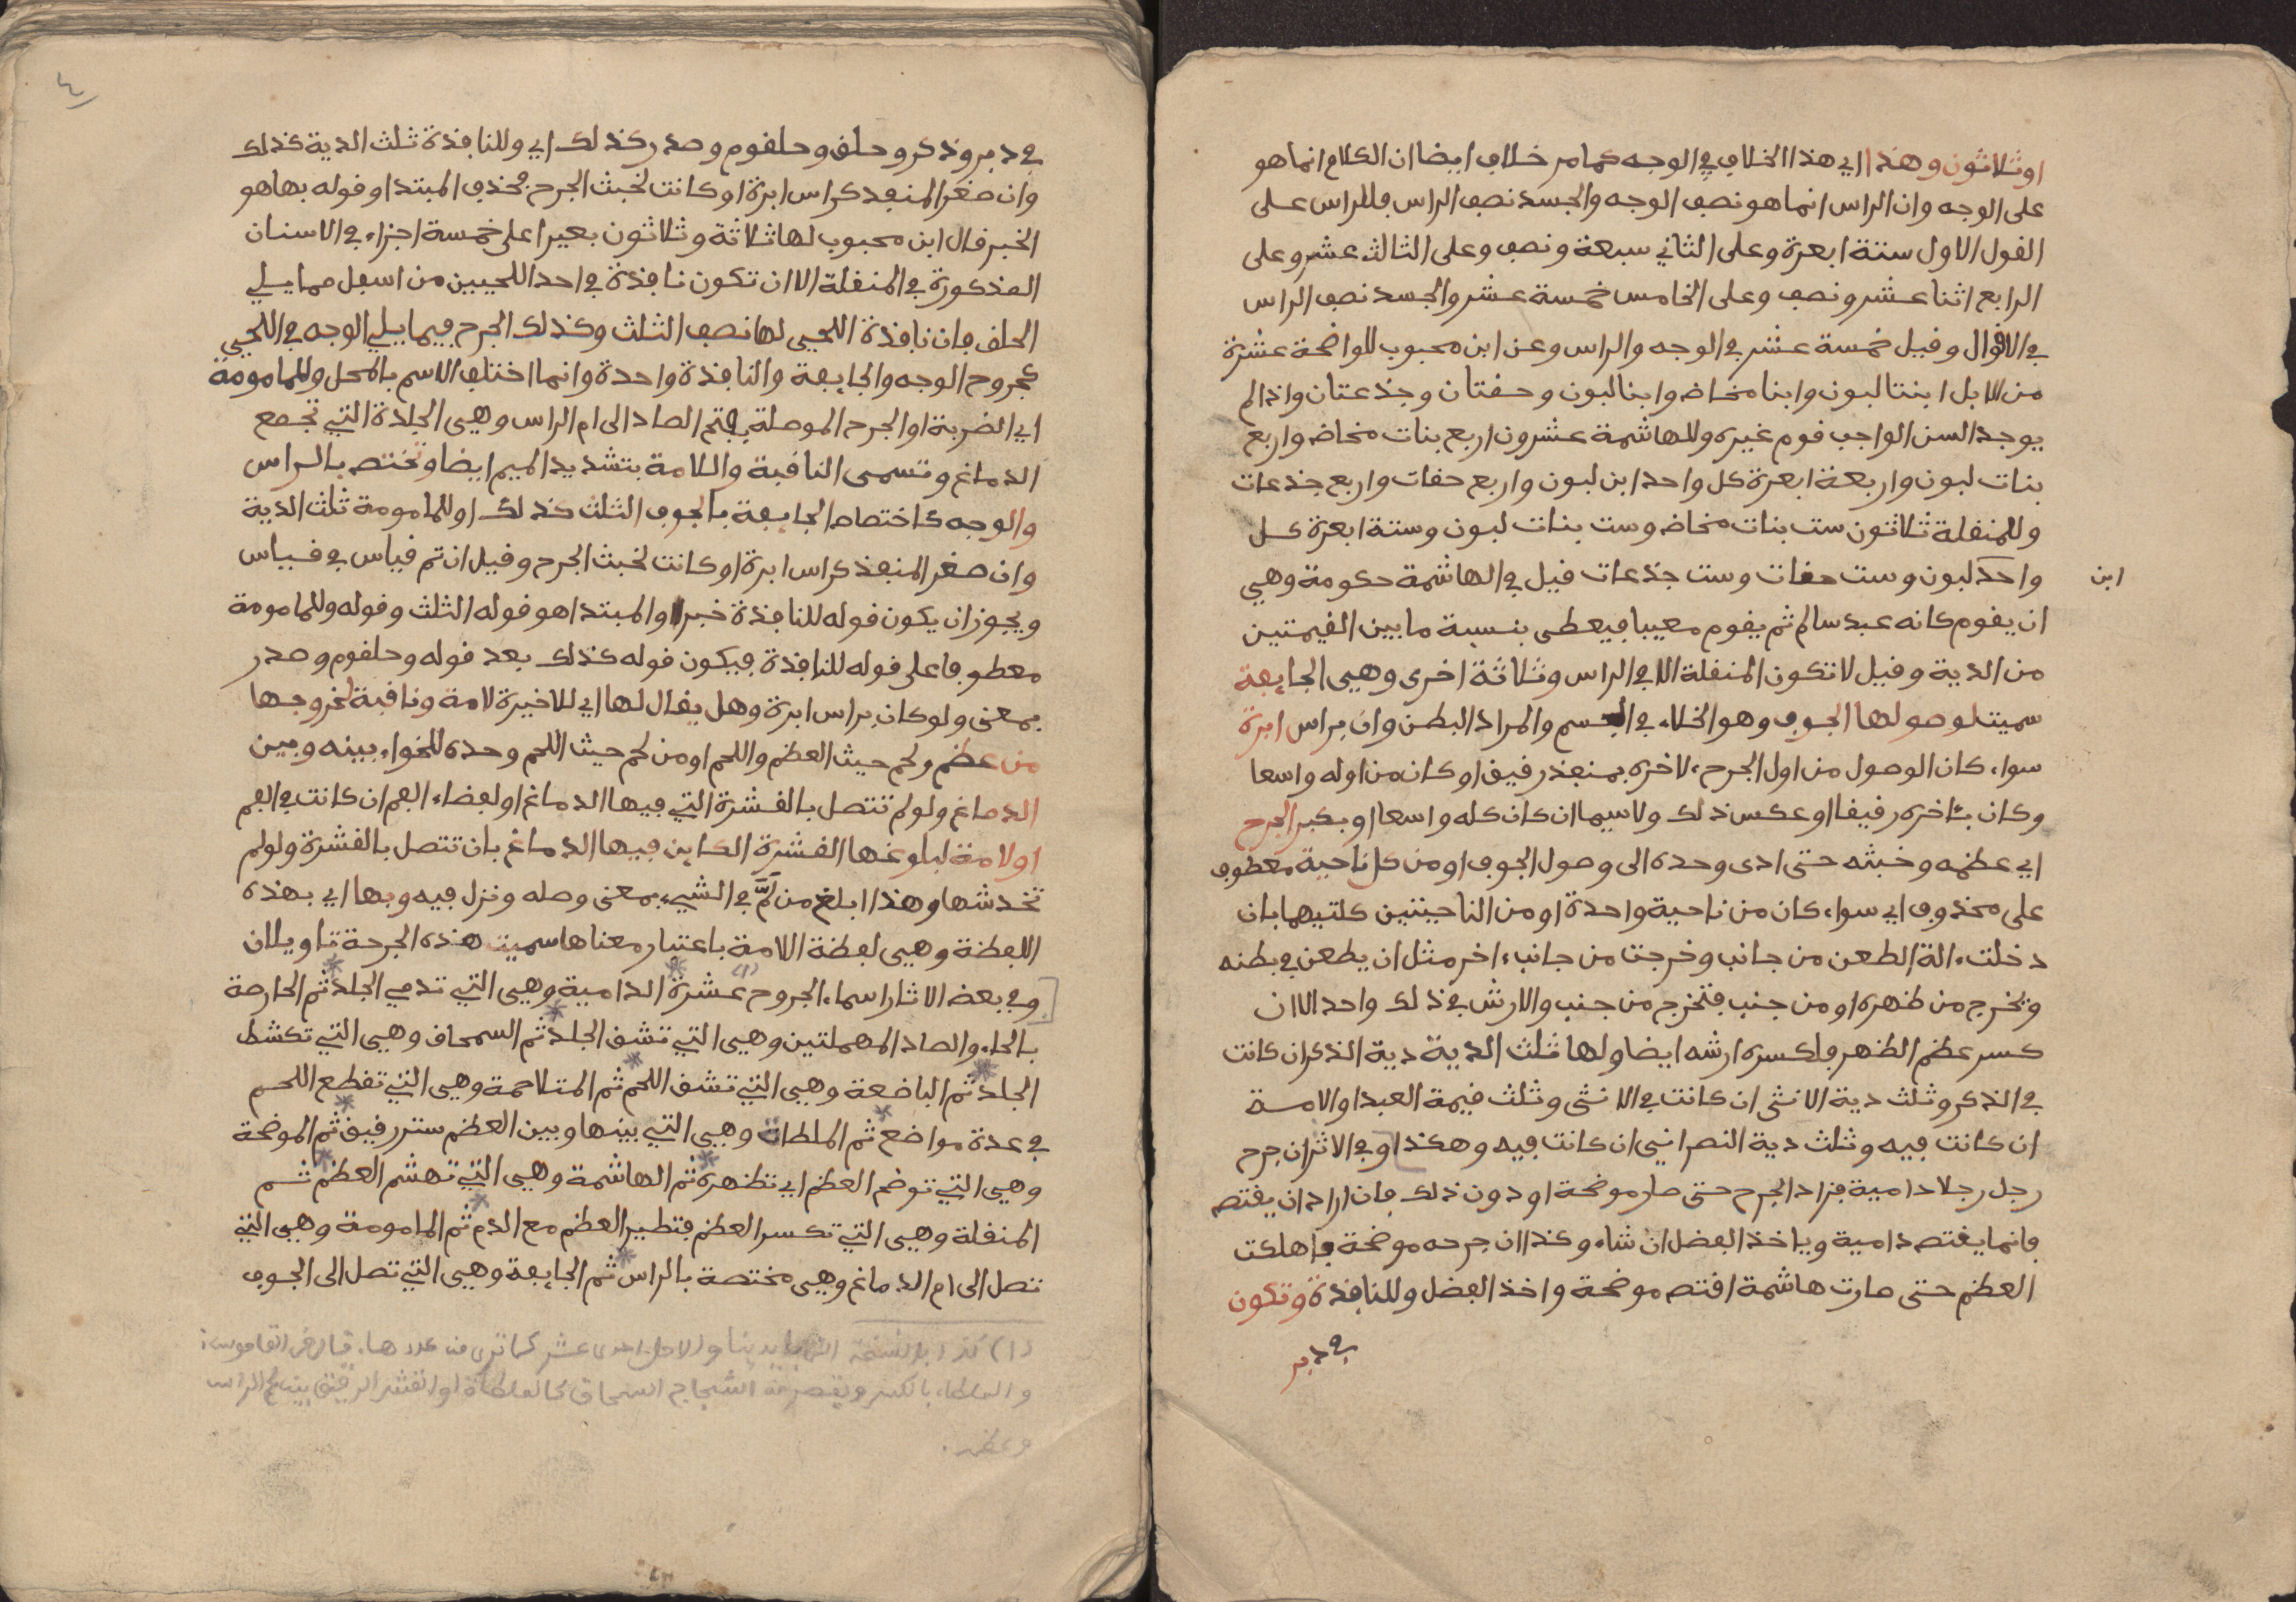 اوثلاثون وهذا اي هذا الخلاف في الوجه كما مر خلاف ايضا ان الكلام انما هو
على الوجه وان الراس انما هو نصف الوجه والجسد نصف الراس فللراس على
القول الاول ستة ابعرة وعلى الثاني سبعة ونصف وعلى الثالث عشر وعلى
الرابع اثنا عشر ونصف وعلى الخامس خمسة عشر والجسد نصف الراس
في الاقوال وقيل خمسة عشر في الوجه والراس وعن ابن محبوب للواضحة عشرة
من الابل ابنتا لبون وابنا مخاض وابنا لبون وحقتان وجذعتان واذا لم
يوجد السن الواجب قوم غيره وللهاشمة عشرون اربع بنات مخاض واربع
بنات لبون واربعة ابعرة كل واحد ابن لبون واربع حقات واربع جذعات
وللمنقلة ثلاثون ست بنات مخاض وست بنات لبون وستة ابعرة كل
واحد لبون وست حقات وست جذعات قيل في الهاشمة حكومة وهي
ابن
ان يقوم كانه عبد سالم ثم يقوم معيبا فيعطى بنسبة ما بين القيمتين
من الدية وقيل لا تكون المنقلة الا في الراس وثلاثة اخرى وهي الجايفة
سميت لوصولها الجوف وهو الخلاء في الجسم والمراد البطن وان براس ابرة
سواء كان الوصول من اول الجرح ءلاخره بمنفذ رقيق او كان من اوله واسعا
وكان بـئاخره رقيقا او عكس ذلك ولا سيما ان كان كله واسعا او بكبر الجرح
اي عظمه وخبثه حتى ادى وحده الى وصول الجوف او من كل ناحية معطوف
على محذوف اي سواء كان من ناحية واحدة او من الناحيتين كلتيهما بان
دخلت ءالة الطعن من جانب وخرجت من جانب ءاخر مثل ان يطعن في بطنه
وتخرج من ظهره او من جنب فتخرج من جنب والارش في ذلك واحد الا ان
كسر عظم الظهر فلكسره ارشه ايضا ولها ثلث الدية دية الذكر ان كانت
في الذكر وثلث دية الانثى ان كانت في الانثى وثلث قيمة العبد او الامة
ان كانت فيه وثلث دية النصراني ان كانت فيه وهكذا وفي الاثر ان جرح
رجل رجلا دامية فزاد الجرح حتى صار موضحة او دون ذلك فان اراد ان يقتص
فانما يقتص دامية وياخذ الفضل ان شاء وكذا ان جرحه موضحة فاهلكت
العظم حتى صارت هاشمة اقتص موضحة واخذ الفضل وللنافذة وتكون
في دبر
٤
في دبر وذكر وحلق وحلقوم وصدر كذلك اي وللنافذة ثلث الدية كذلك
وان صغر المنفذ كراس ابرة او كانت لخبث الجرح فحذف المبتدا وقوله بها هو
الخبر قال ابن محبوب لها ثلاثة وثلاثون بعيرا على خمسة اجزاء في الاسنان
المذكورة في المنقلة الا ان تكون نافذة في احد اللحيين من اسفل مما يلي
الحلق فان نافذة اللحيي لها نصف الثلث وكذلك الجرح فيما يلي الوجه في اللحيي
كجروح الوجه والجايفة والنافذة واحدة وانما اختلف الاسم بالمحل وللمامومة
اي الضربة او الجرح الموصلة بفتح الصاد الى ام الراس وهي الجلدة التي تجمع
الدماغ وتسمى الناقبة واللامة بتشديد الميم ايضا وتختص بالراس
والوجه كاختصاص الجايفة بالجوف الثلث كذلك او للمامومة ثلث الدية
وان صغر المنفذ كراس ابرة او كانت لخبث الجرح وقيل ان تم قياس في قياس
ويجوز ان يكون قوله للنافذة خبرا والمبتدا هو قوله الثلث وقوله وللمامومة
معطوفا على قوله للنافذة فيكون قوله كذلك بعد قوله وحلقوم وصدر
بمعنى ولو كان براس ابرة وهل يقال لها اي للاخيرة لامة وناقبة لخروجها
من عظم ولحم حيث العظم واللحم او من لحم حيث اللحم وحده للخواء بينه وبين
الدماغ ولو لم تتصل بالقشرة التي فيها الدماغ او لفضاء الفم ان كانت في الفم
او لامة لبلوغها القشرة الكاين فيها الدماغ بان تتصل بالقشرة ولو لم
تخدشها وهذا ابلغ من لمَّ في الشيء بمعنى وصله ونزل فيه وبها اي بهذه
اللفظة وهي لفظة اللامة باعتبار معناها سميت هذه الجرحة تاويلان
[وفي بعض الاثار اسماء الجروح عشرة (١) الدامية وهي التي تدمي الجلد ثم الحارصة
بالحاء والصاد المهملتين وهي التي تشق الجلد ثم السمحاق وهي التي تكشط
الجلد ثم الباضعة وهي التي تشق اللحم ثم المتلاحمة وهي التي تقطع اللحم
في عدة مواضع ثم الملطاة وهي التي بينها وبين العظم ستر رقيق ثم الموضحة
وهي التي توضح العظم اي تظهره ثم الهاشمة وهي التي تهشم العظم ثم
المنقلة وهي التي تكسر العظم فتطير العظم مع الدم ثم المامومة وهي التي
تصل الى ام الدماغ وهي مختصة بالراس ثم الجايفة وهي التي تصل الى الجوف
(١) كذا بالنسخة التي بايدينا والاصل احدى عشر كما ترى من عددها. قال في القاموس:
والملطاء بالكسر ويقصر من الشجاج السمحاق كالملطاة او القشر الرقيق بين لحم الراس
وعظمه.